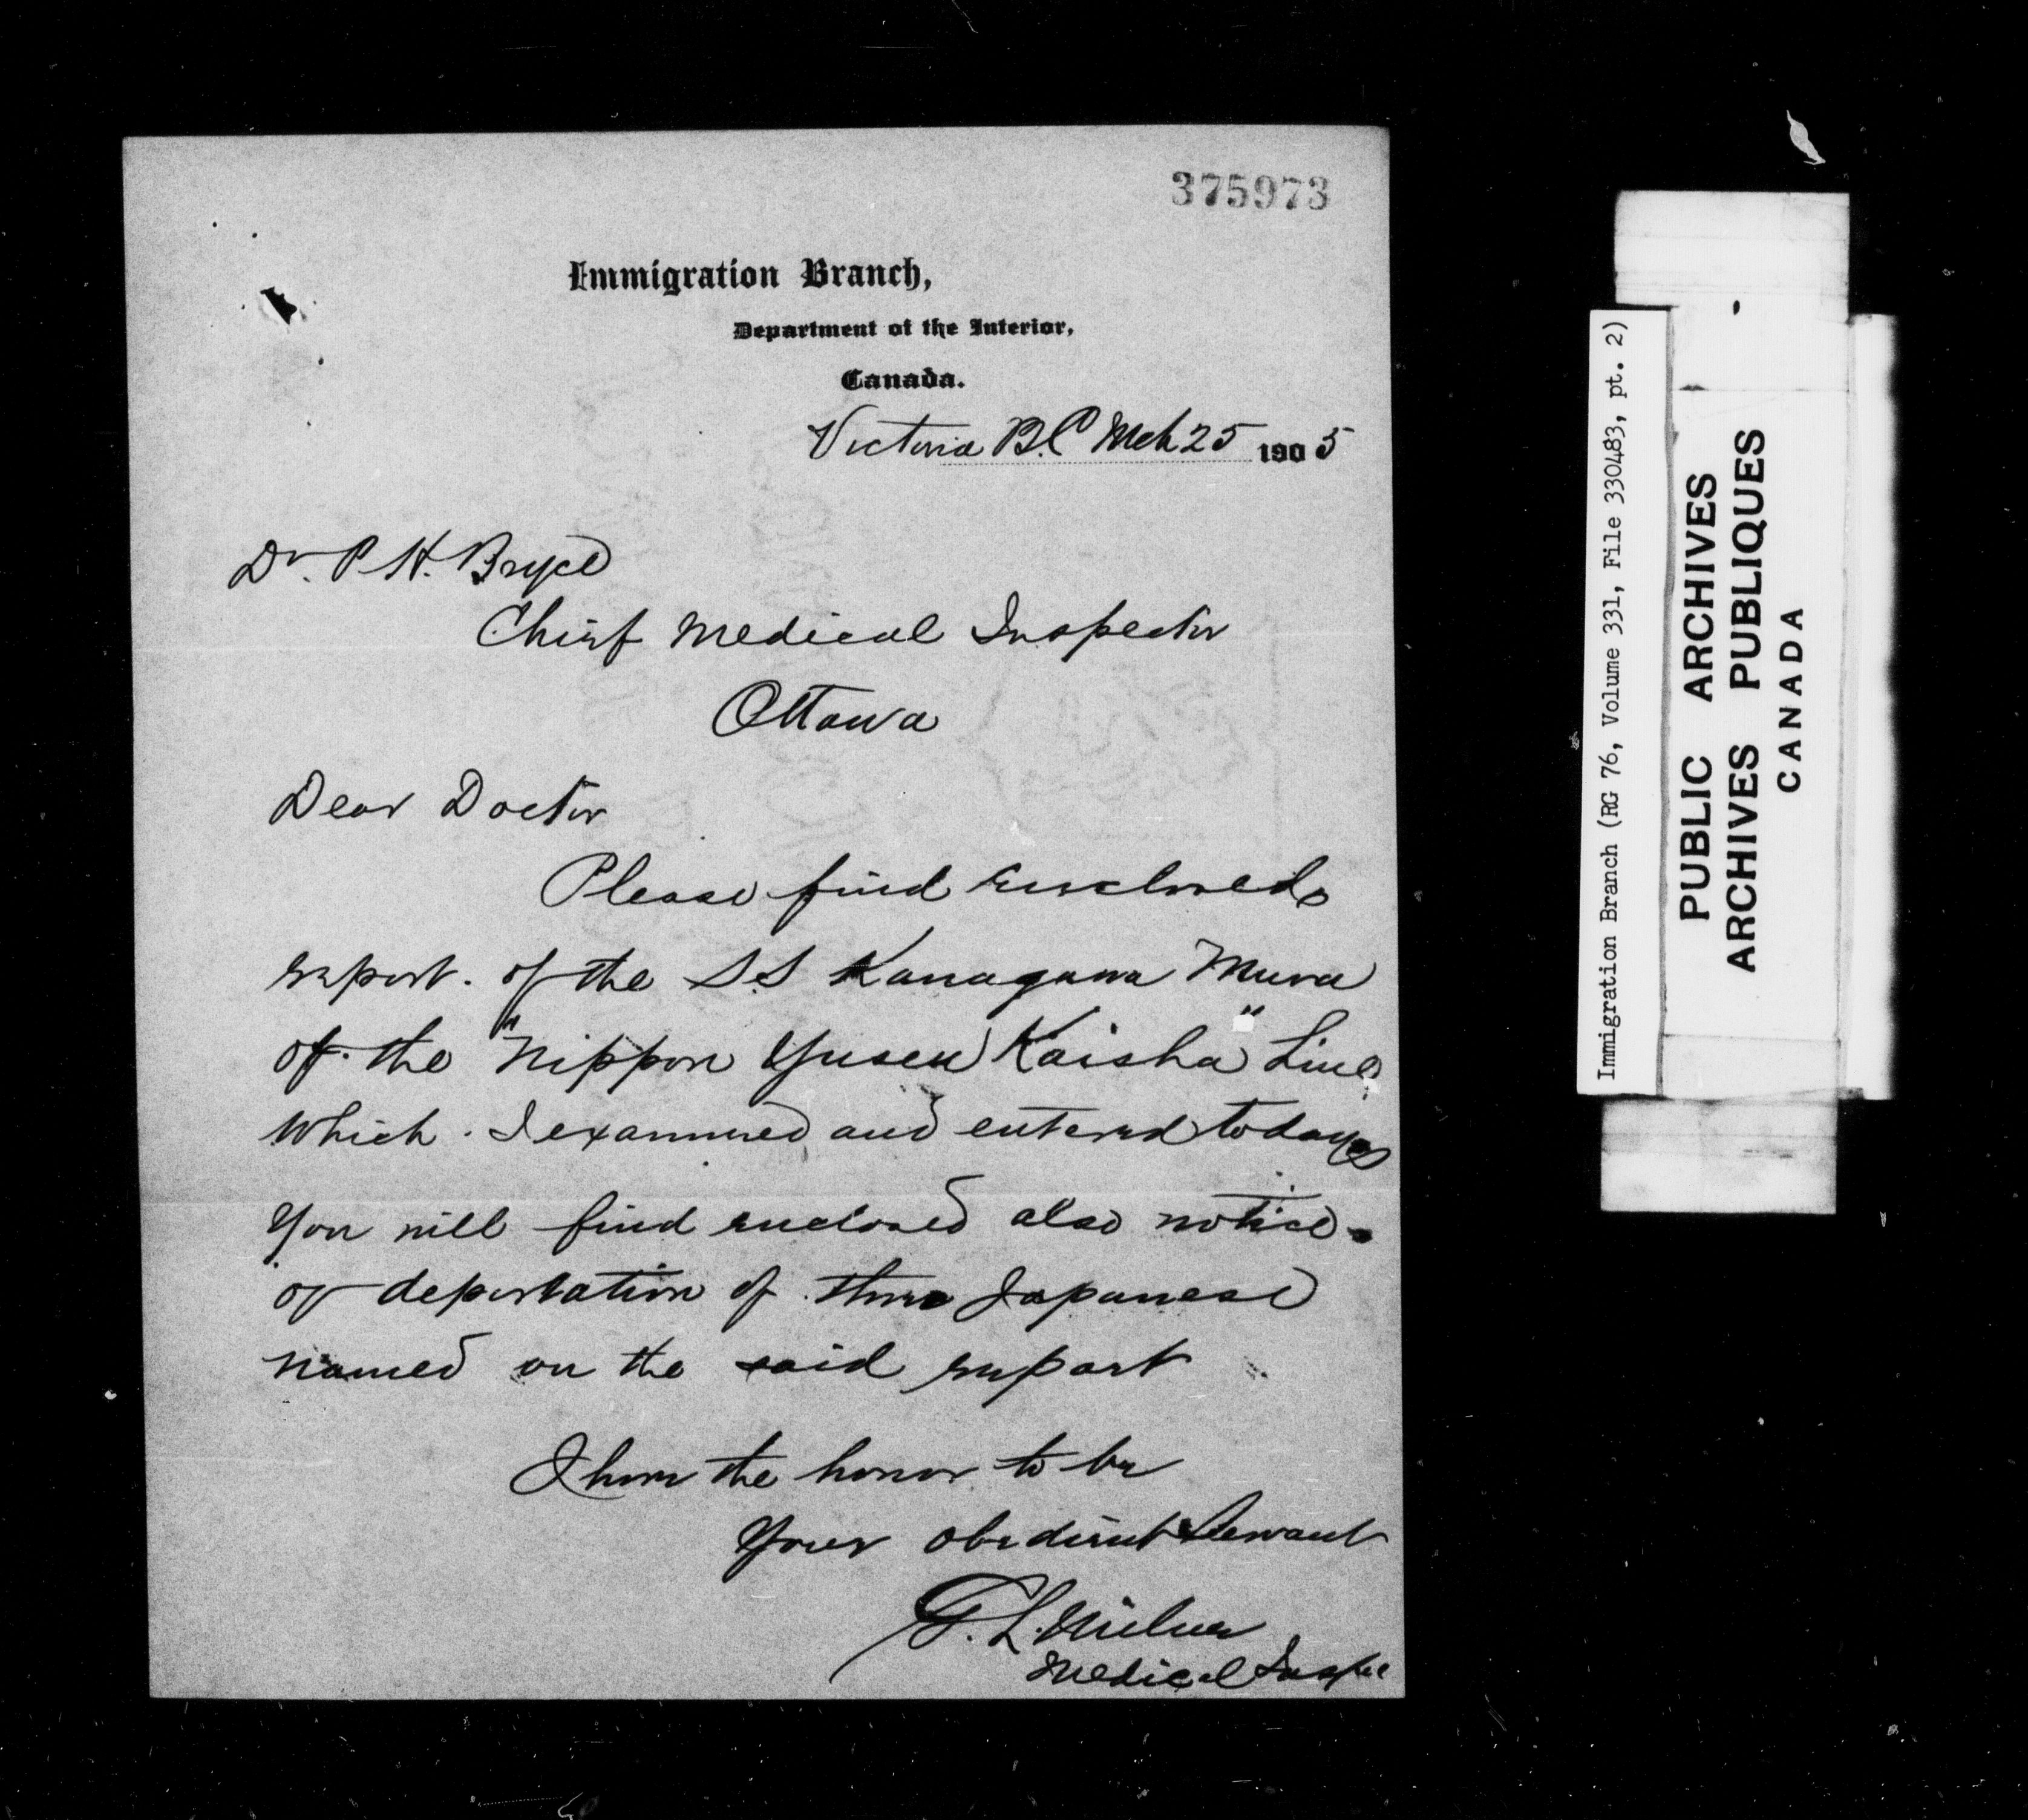 375973
Immigration Branch,
Department of the Interior,
Canada.
Victoria B.C Mch 25 1905
Dr. P H. Bryce
Chief Medical Inspector
Ottawa
Dear Doctor
Please find enclosed
report. of the SS Kanagawa Mura
of the "Nippon Yusen Kaisha" Line
which I examined and entered today
You will find enclosed also notice
of deportation of three Japanese
named on the said report
I have the honor to be
Your obedient Servant
G. L. Milne
Medical Inspec
Immigration Branch (RG 76, Volume 331, File 330483, pt. 2)
PUBLIC ARCHIVES
ARCHIVES PUBLIQUES
CANADA